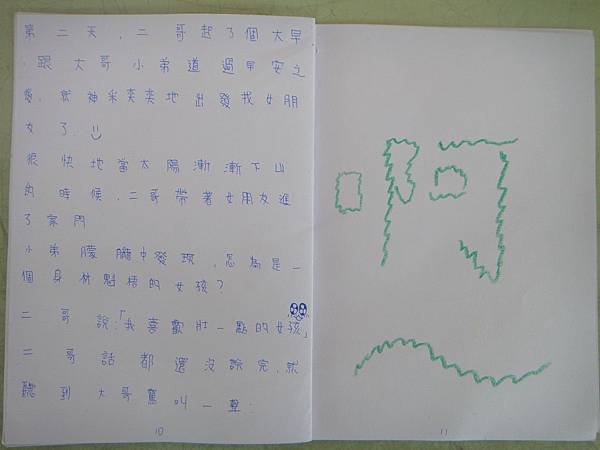 第二天,二哥起了個大早
,跟大哥小弟道過早安之
後,就神采奕奕地出發找女朋
友了.
很快地當太陽漸漸下山
的時候,二哥帶著女朋友進
了家門
小弟朦朧中發現,怎為是一
個身材魁梧的女孩?
二哥說:「我喜歡壯一點的女孩」
二哥話都還沒說完,就
聽到大哥驚叫一聲:
10
啊
11